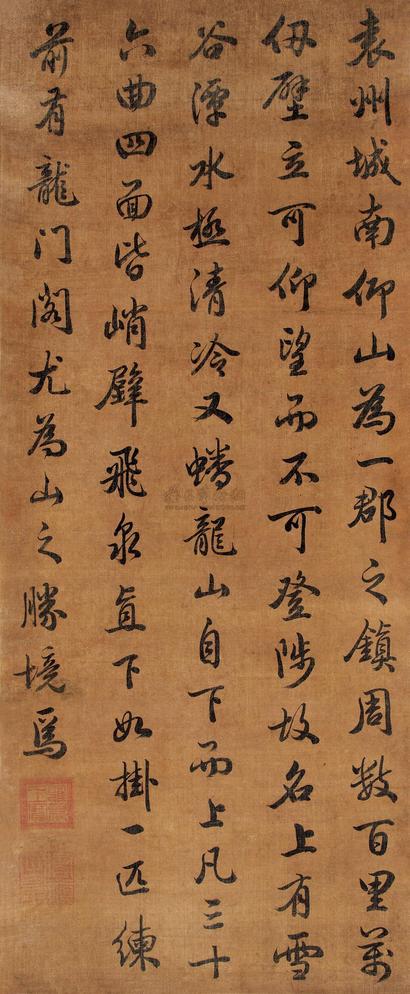 袁州城南仰山為一郡之鎮周数百里萬
仭壁立可仰望而不可登陟故名上有雪
谷潭水極清冷又蟠龍山自下而上凡三十
六曲四面皆峭壁飛泉直下如掛一匹練
前有龍门阁尤為山之勝境焉